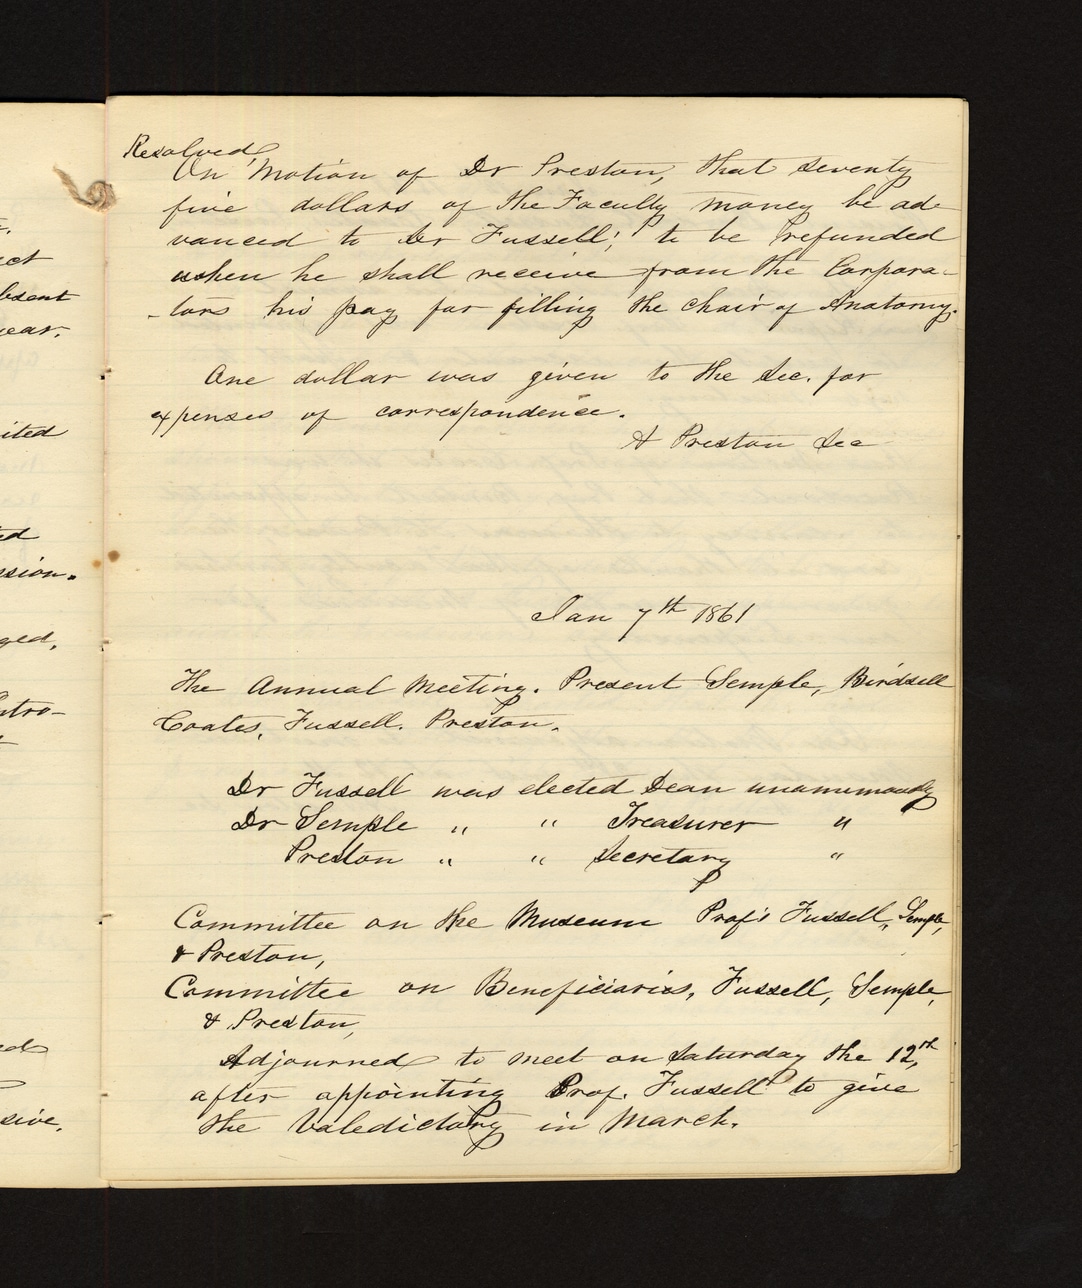 ect
bsent
year.
ited
ed
ssion.
ged,
ntro-
ed
sive.
Resolved
On Motion of Dr Preston, that seventy
five dollars of the Faculty money be ad-
vanced to Dr Fussell; to be refunded
when he shall receive from the Corpora-
-tors his pay for filling the chair of Anatomy.
One dollar was given to the Sec. for
expenses of correspondence.
A Preston Sec
Jan 7th 1861
The Annual Meeting. Present Semple, Birdsell
Coates, Fussell. Preston.
Dr Fussell was elected Dean unanimously
Dr Semple " " Treasurer "
Preston " " Secretary "
Committee on the Museum Prof's Fussell, Semple,
& Preston,
Committee on Beneficiaries, Fussell, Semple,
& Preston,
Adjourned to meet on Saturday the 12th,
after appointing Prof. Fussell to give
the Valedictory in March.